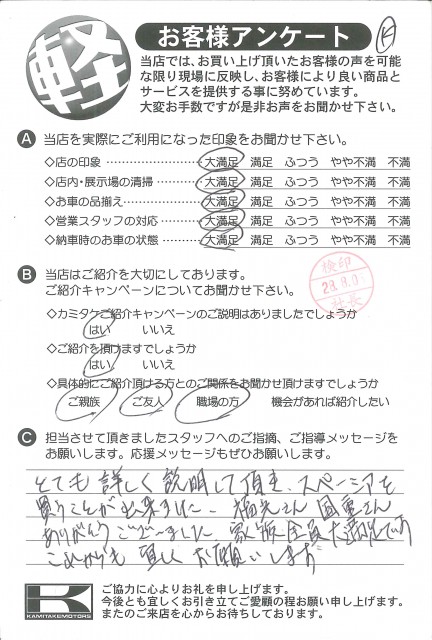 軽
お客様アンケート
当店では、お買い上げ頂いたお客様の声を可能
な限り現場に反映し、お客様により良い商品と
サービスを提供する事に努めています。
大変お手数ですが是非お声をお聞かせ下さい。
A 当店を実際にご利用になった印象をお聞かせ下さい。
◇店の印象 ………………… 大満足 満足 ふつう やや不満 不満
◇店内・展示場の清掃 ………… 大満足 満足 ふつう やや不満 不満
◇お車の品揃え ……………… 大満足 満足 ふつう やや不満 不満
◇営業スタッフの対応 ………… 大満足 満足 ふつう やや不満 不満
◇納車時のお車の状態 ………… 大満足 満足 ふつう やや不満 不満
B 当店はご紹介を大切にしております。
ご紹介キャンペーンについてお聞かせ下さい。
検印
社長
◇カミタケご紹介キャンペーンのご説明はありましたでしょうか
はい いいえ
◇ご紹介を頂けますでしょうか
はい いいえ
◇具体的にご紹介頂ける方とのご関係をお聞かせ頂けますでしょうか
ご親族 ご友人 職場の方 機会があれば紹介したい
C 担当させて頂きましたスタッフへのご指摘、ご指導メッセージを
お願いします。応援メッセージもぜひお願いします。
とても詳しく説明して頂き、スペーシアを
買うことが出来ました。 さん さん
ありがとうございました 家族全員大満足です
これからも宜しくお願いします
K
KAMITAKEMOTORS
ご協力に心よりお礼を申し上げます。
今後とも宜しくお引き立てご愛顧の程お願い申し上げます。
またのご来店を心からお待ちしております。